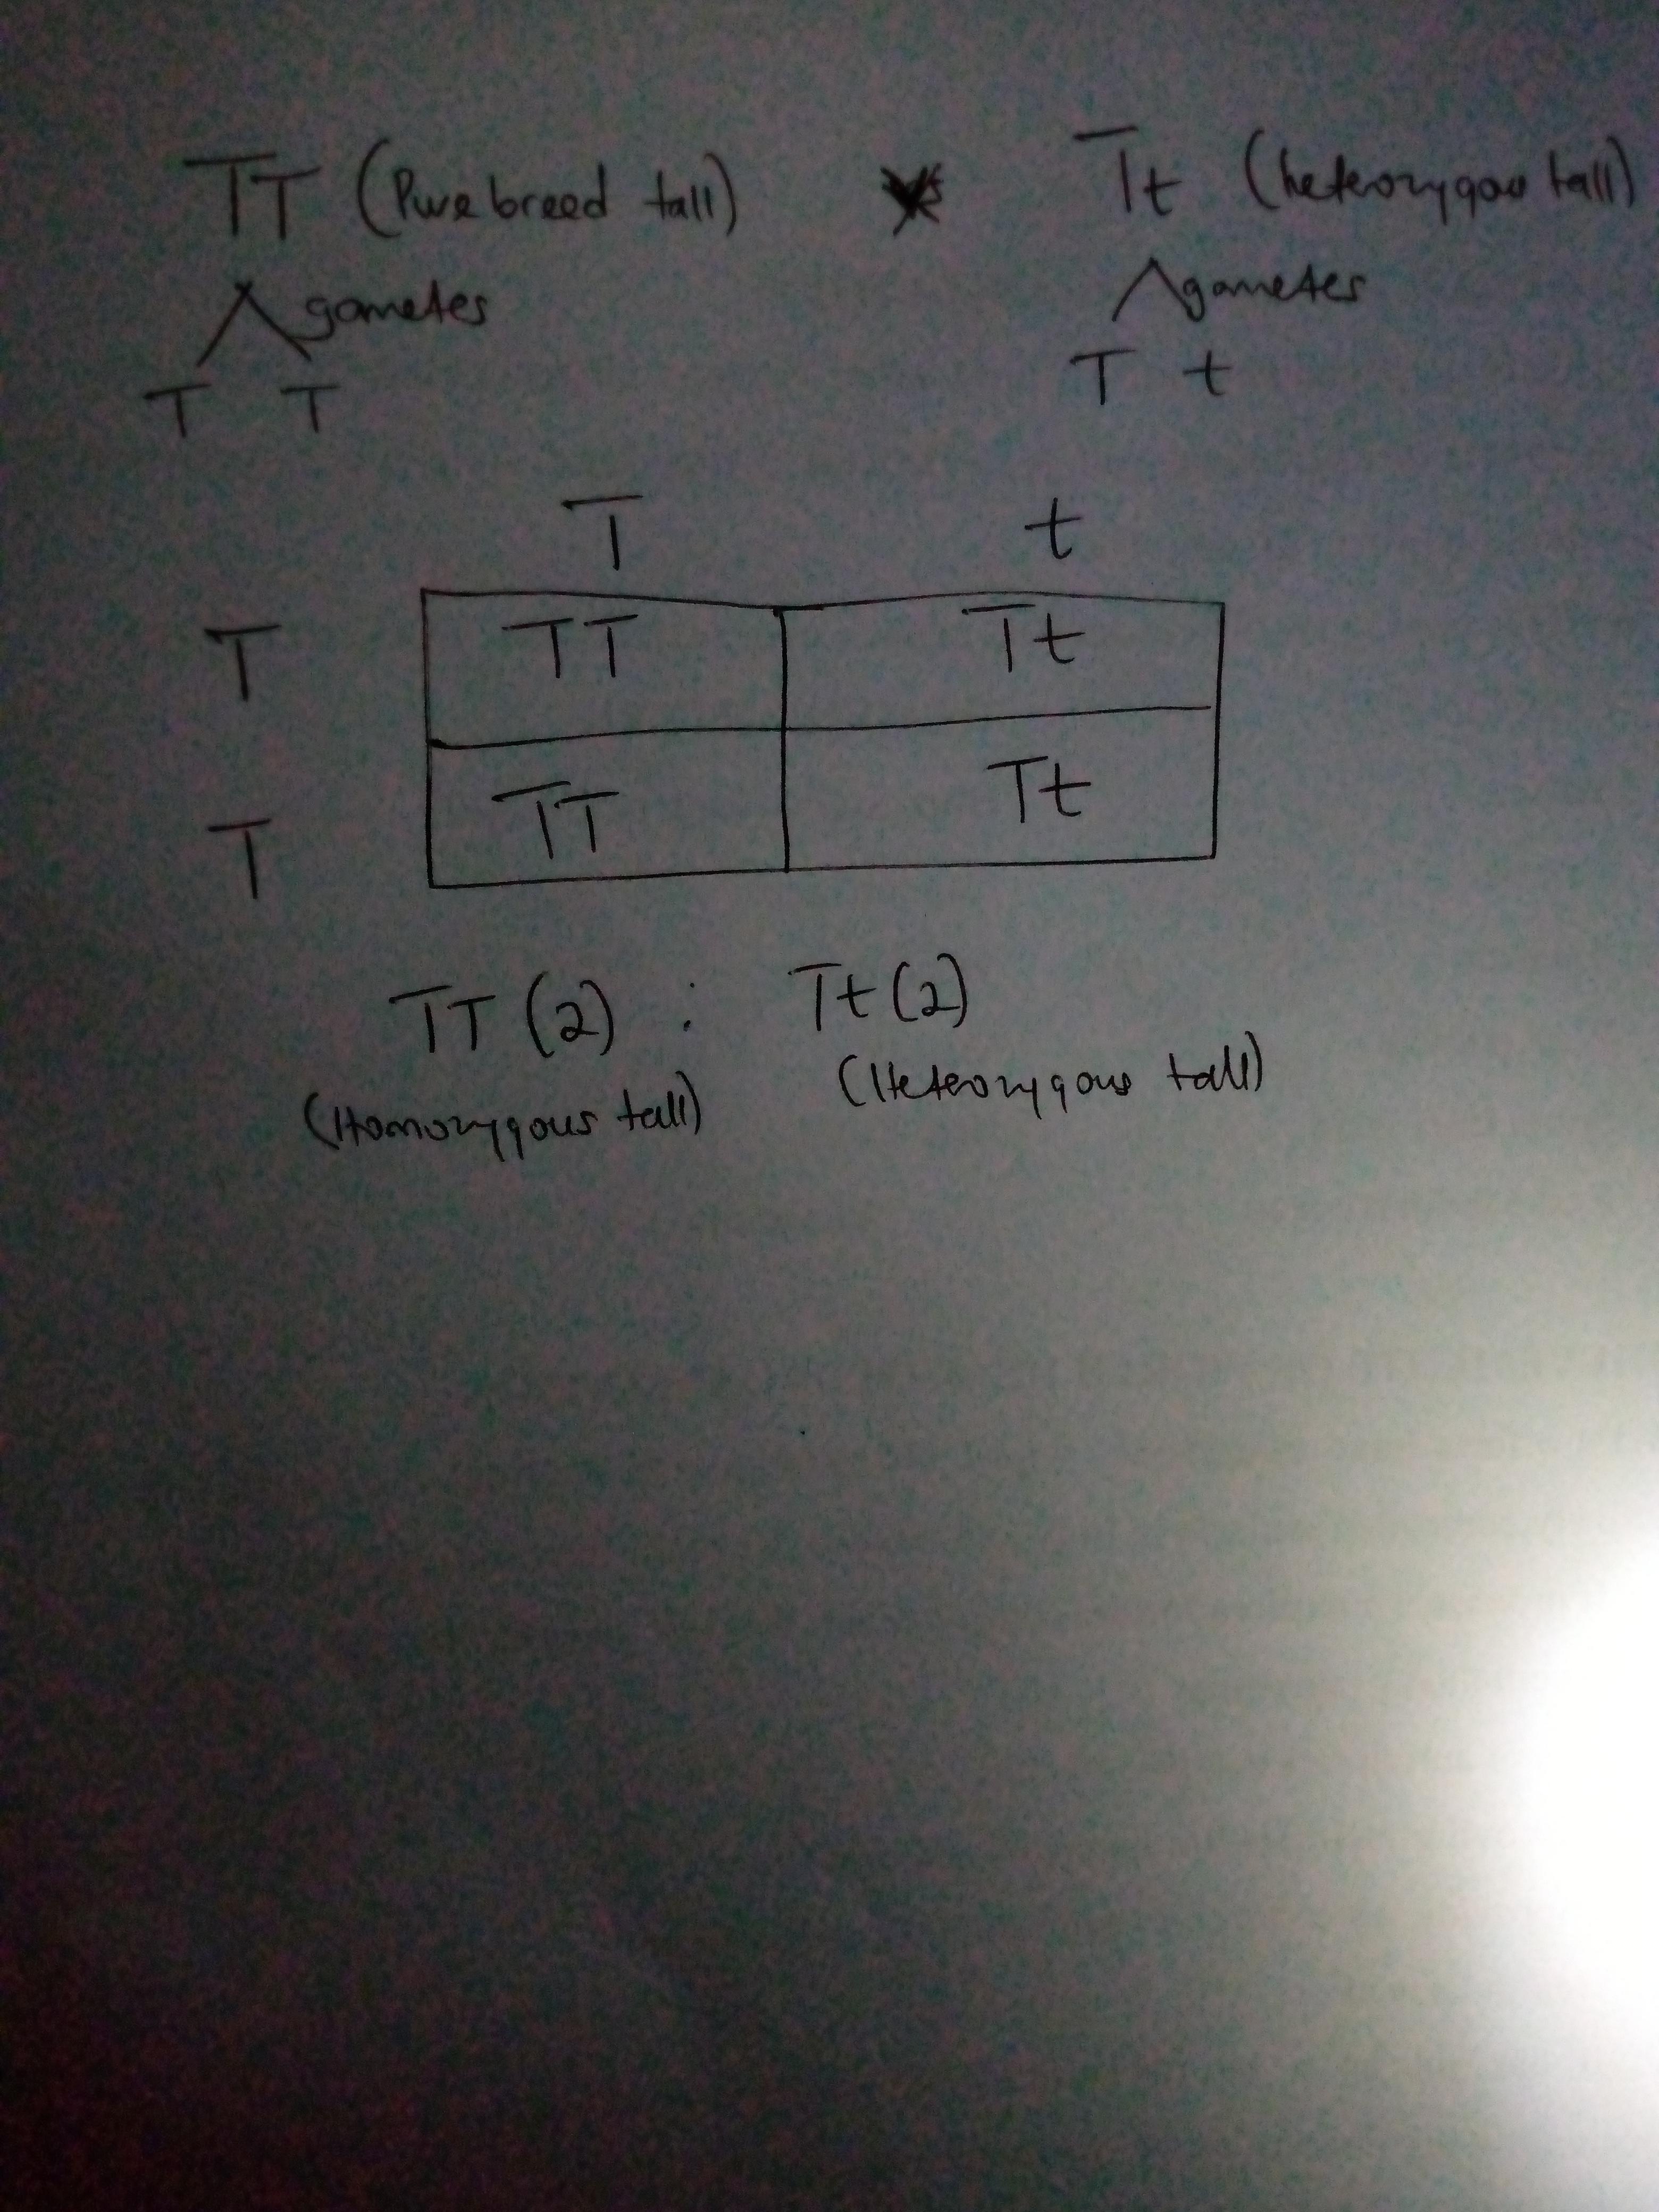 TT (Pure breed tall) × Tt (heterozygous tall)
gametes gametes
T T T t
T t
T TT Tt
T TT Tt
TT (2) : Tt (2)
(Homozygous tall) (Heterozygous tall)